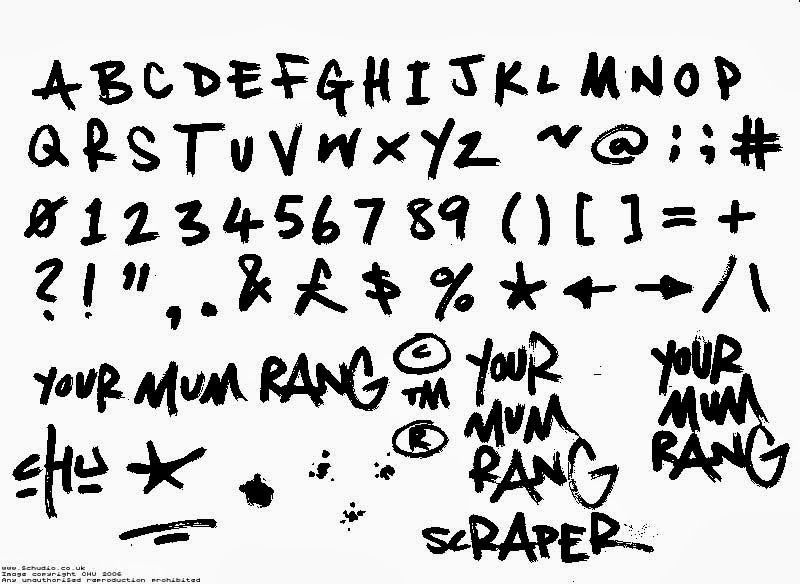 A B C D E F G H I J K L M N O P
Q R S T U V W X Y Z ~ @ : ; #
0 1 2 3 4 5 6 7 8 9 ( ) [ ] = +
? ! " , . & £ $ % * ← → / \
YOUR MUM RANG
©
TM
®
YOUR
MUM
RANG
YOUR
MUM
RANG
CHU
SCRAPER
www.Schudio.co.uk
Image copyright CHU 2006
Any unauthorised reproduction prohibited